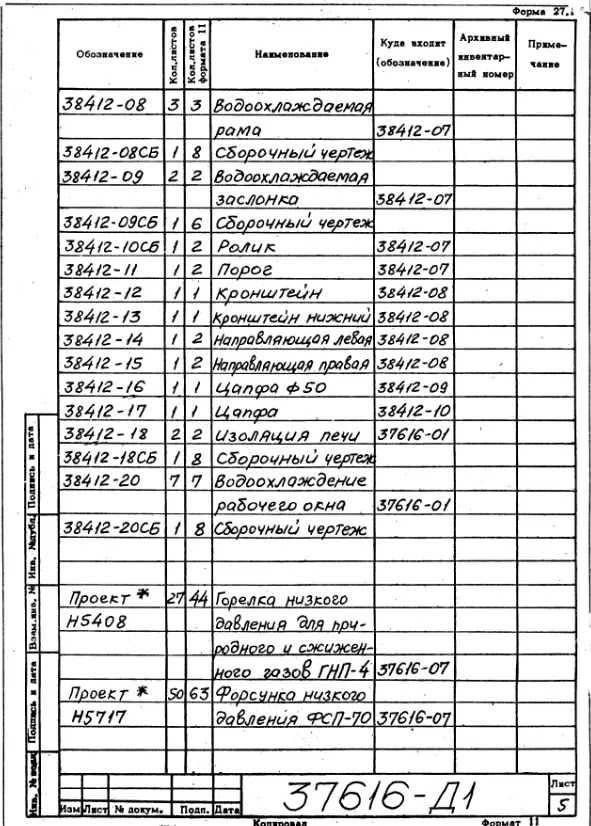 Форма 27.1
Обозначение Кол.листов Кол.листов формата 11 Наименование Куда входит (обозначение) Архивный инвентарный номер Примечание
38412-08 3 3 Водоохлаждаемая
рама 38412-07
38412-08СБ 1 8 Сборочный чертеж
38412-09 2 2 Водоохлаждаемая
заслонка 38412-07
38412-09СБ 1 6 Сборочный чертеж
38412-10СБ 1 2 Ролик 38412-07
38412-11 1 2 Порог 38412-07
38412-12 1 1 Кронштейн 38412-08
38412-13 1 1 Кронштейн нижний 38412-08
38412-14 1 2 Направляющая левая 38412-08
38412-15 1 2 Направляющая правая 38412-08
38412-16 1 1 Цапфа Ф50 38412-09
38412-17 1 1 Цапфа 38412-10
38412-18 2 2 Изоляция печи 37616-01
38412-18СБ 1 8 Сборочный чертеж
38412-20 7 7 Водоохлаждение
рабочего окна 37616-01
38412-20СБ 1 8 Сборочный чертеж
Проект * 27 44 Горелка низкого
Н5408 давления для при-
родного и сжижен-
ного газов ГНП-4 37616-07
Проект * 50 63 Форсунка низкого
Н5717 давления ФСП-70 37616-07
Подпись и дата
Инв. № дубл.
Взам.инв. №
Подпись и дата
Инв. № подл
Изм Лист № докум. Подп. Дата
37616-Д1
Лист
5
Копировал Формат 11